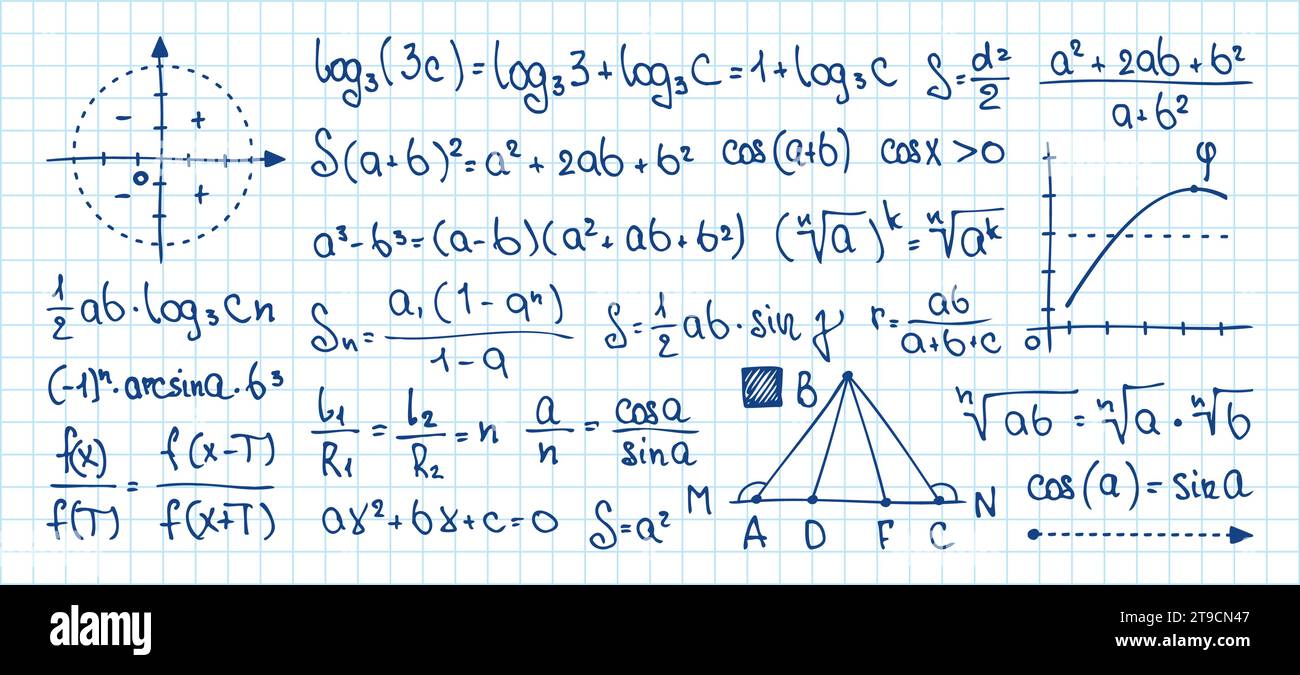 log₃(3c)=log₃3+log₃C=1+log₃C
S=d²/2
(a²+2ab+b²)/(a+b²)
- +
- +
o
S(a+b)²=a²+2ab+b²
cos(a+b)
cosx>0
φ
a³-b³=(a-b)(a²+ab+b²)
(ⁿ√a)ᵏ=ⁿ√aᵏ
1/2 ab·log₃Cn
Sₙ=a₁(1-qⁿ)/(1-q)
S=1/2 ab·sin γ
r=ab/(a+b+c)
0
(-1)ⁿ·arcsina·b³
L₁/R₁=L₂/R₂=n
a/n=cosa/sina
B
ⁿ√ab=ⁿ√a·ⁿ√b
f(x)/f(T)=f(x-T)/f(x+T)
M N
cos(a)=sina
ax²+bx+c=0
S=a²
A D F C
alamy
Image ID: 2T9CN47
www.alamy.com